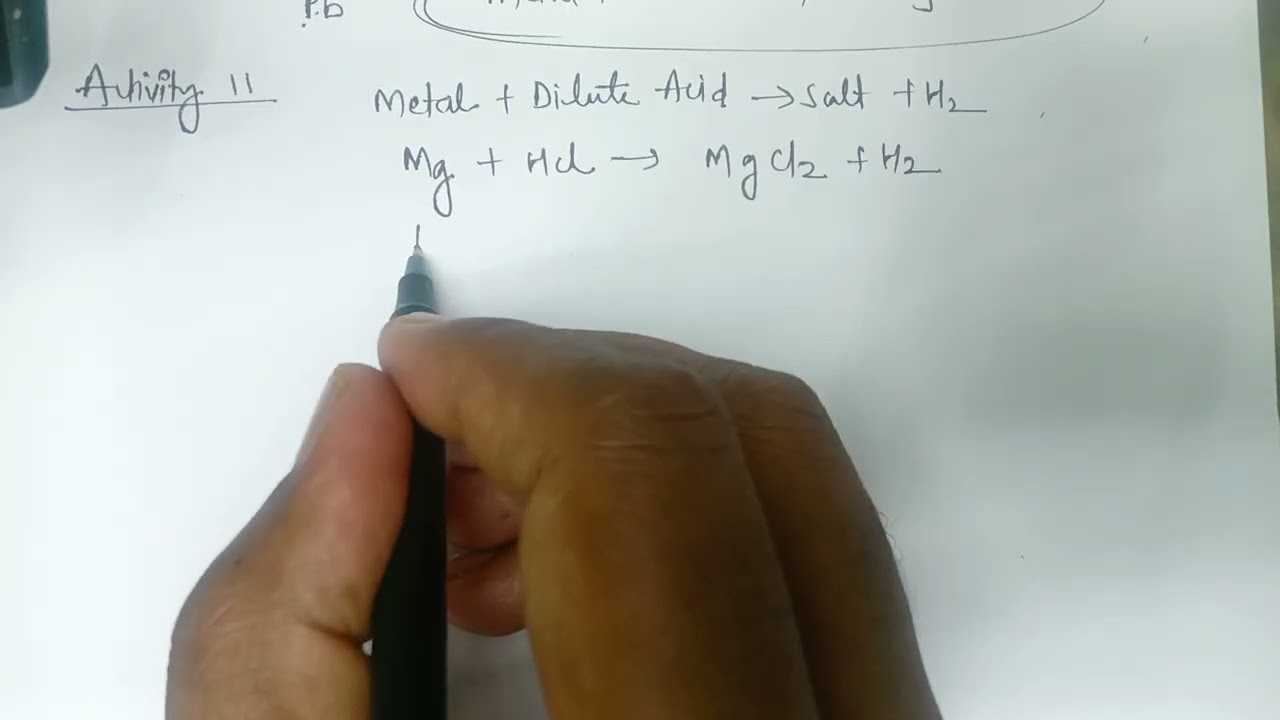 P.b
Activity 11
Metal + Dilute Acid → Salt + H2
Mg + HCl → MgCl2 + H2